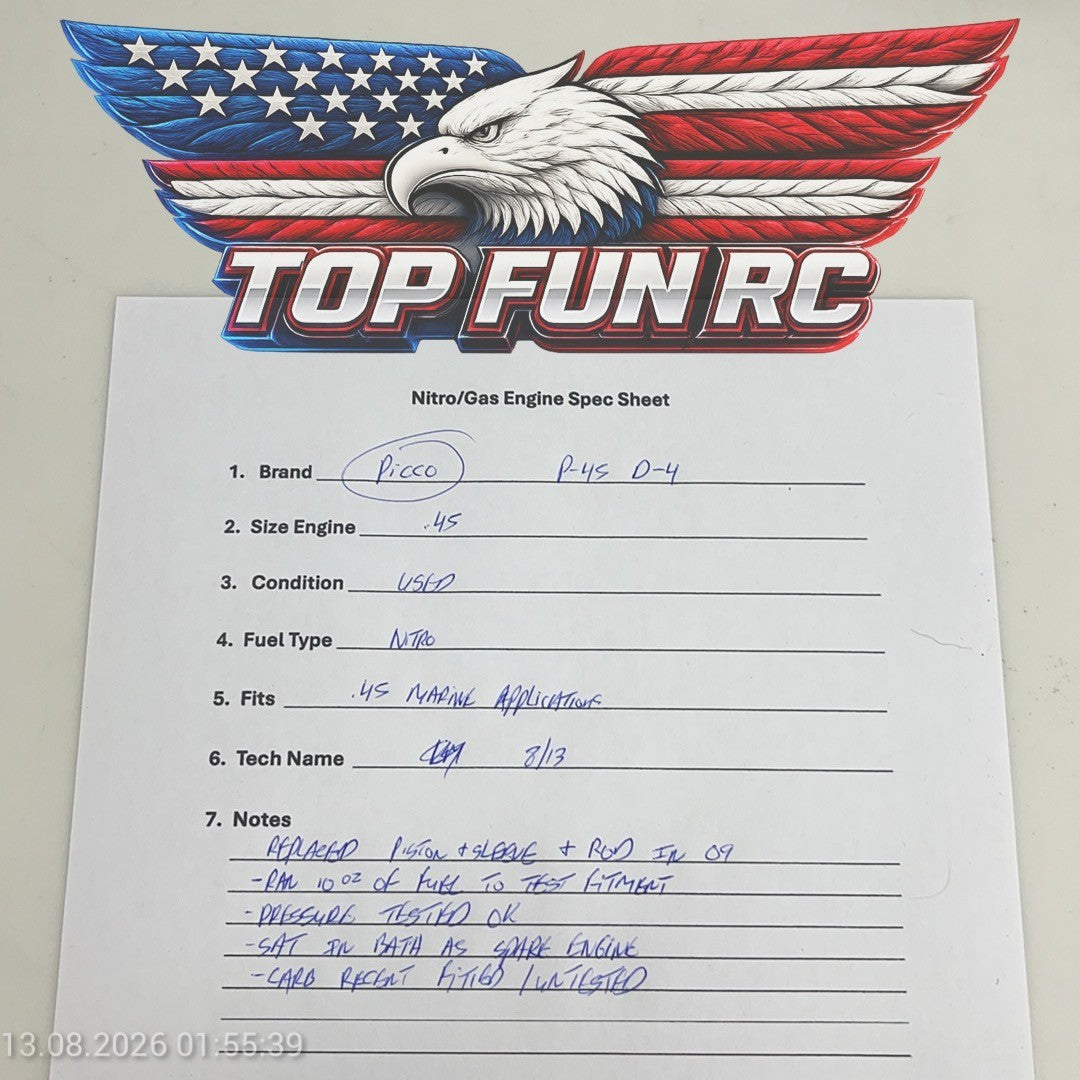 TOP FUN RC
Nitro/Gas Engine Spec Sheet
1. Brand Picco P-45 D-4
2. Size Engine .45
3. Condition USED
4. Fuel Type NITRO
5. Fits .45 MARINE APPLICATIONS
6. Tech Name 8/13
7. Notes
REPLACED PISTON + SLEEVE + ROD IN 09
- RAN 10 OZ OF FUEL TO TEST FITMENT
- PRESSURE TESTED OK
- SAT IN BATH AS SPARE ENGINE
- CARB RECENT FITTED / UNTESTED
13.08.2026 01:55:39